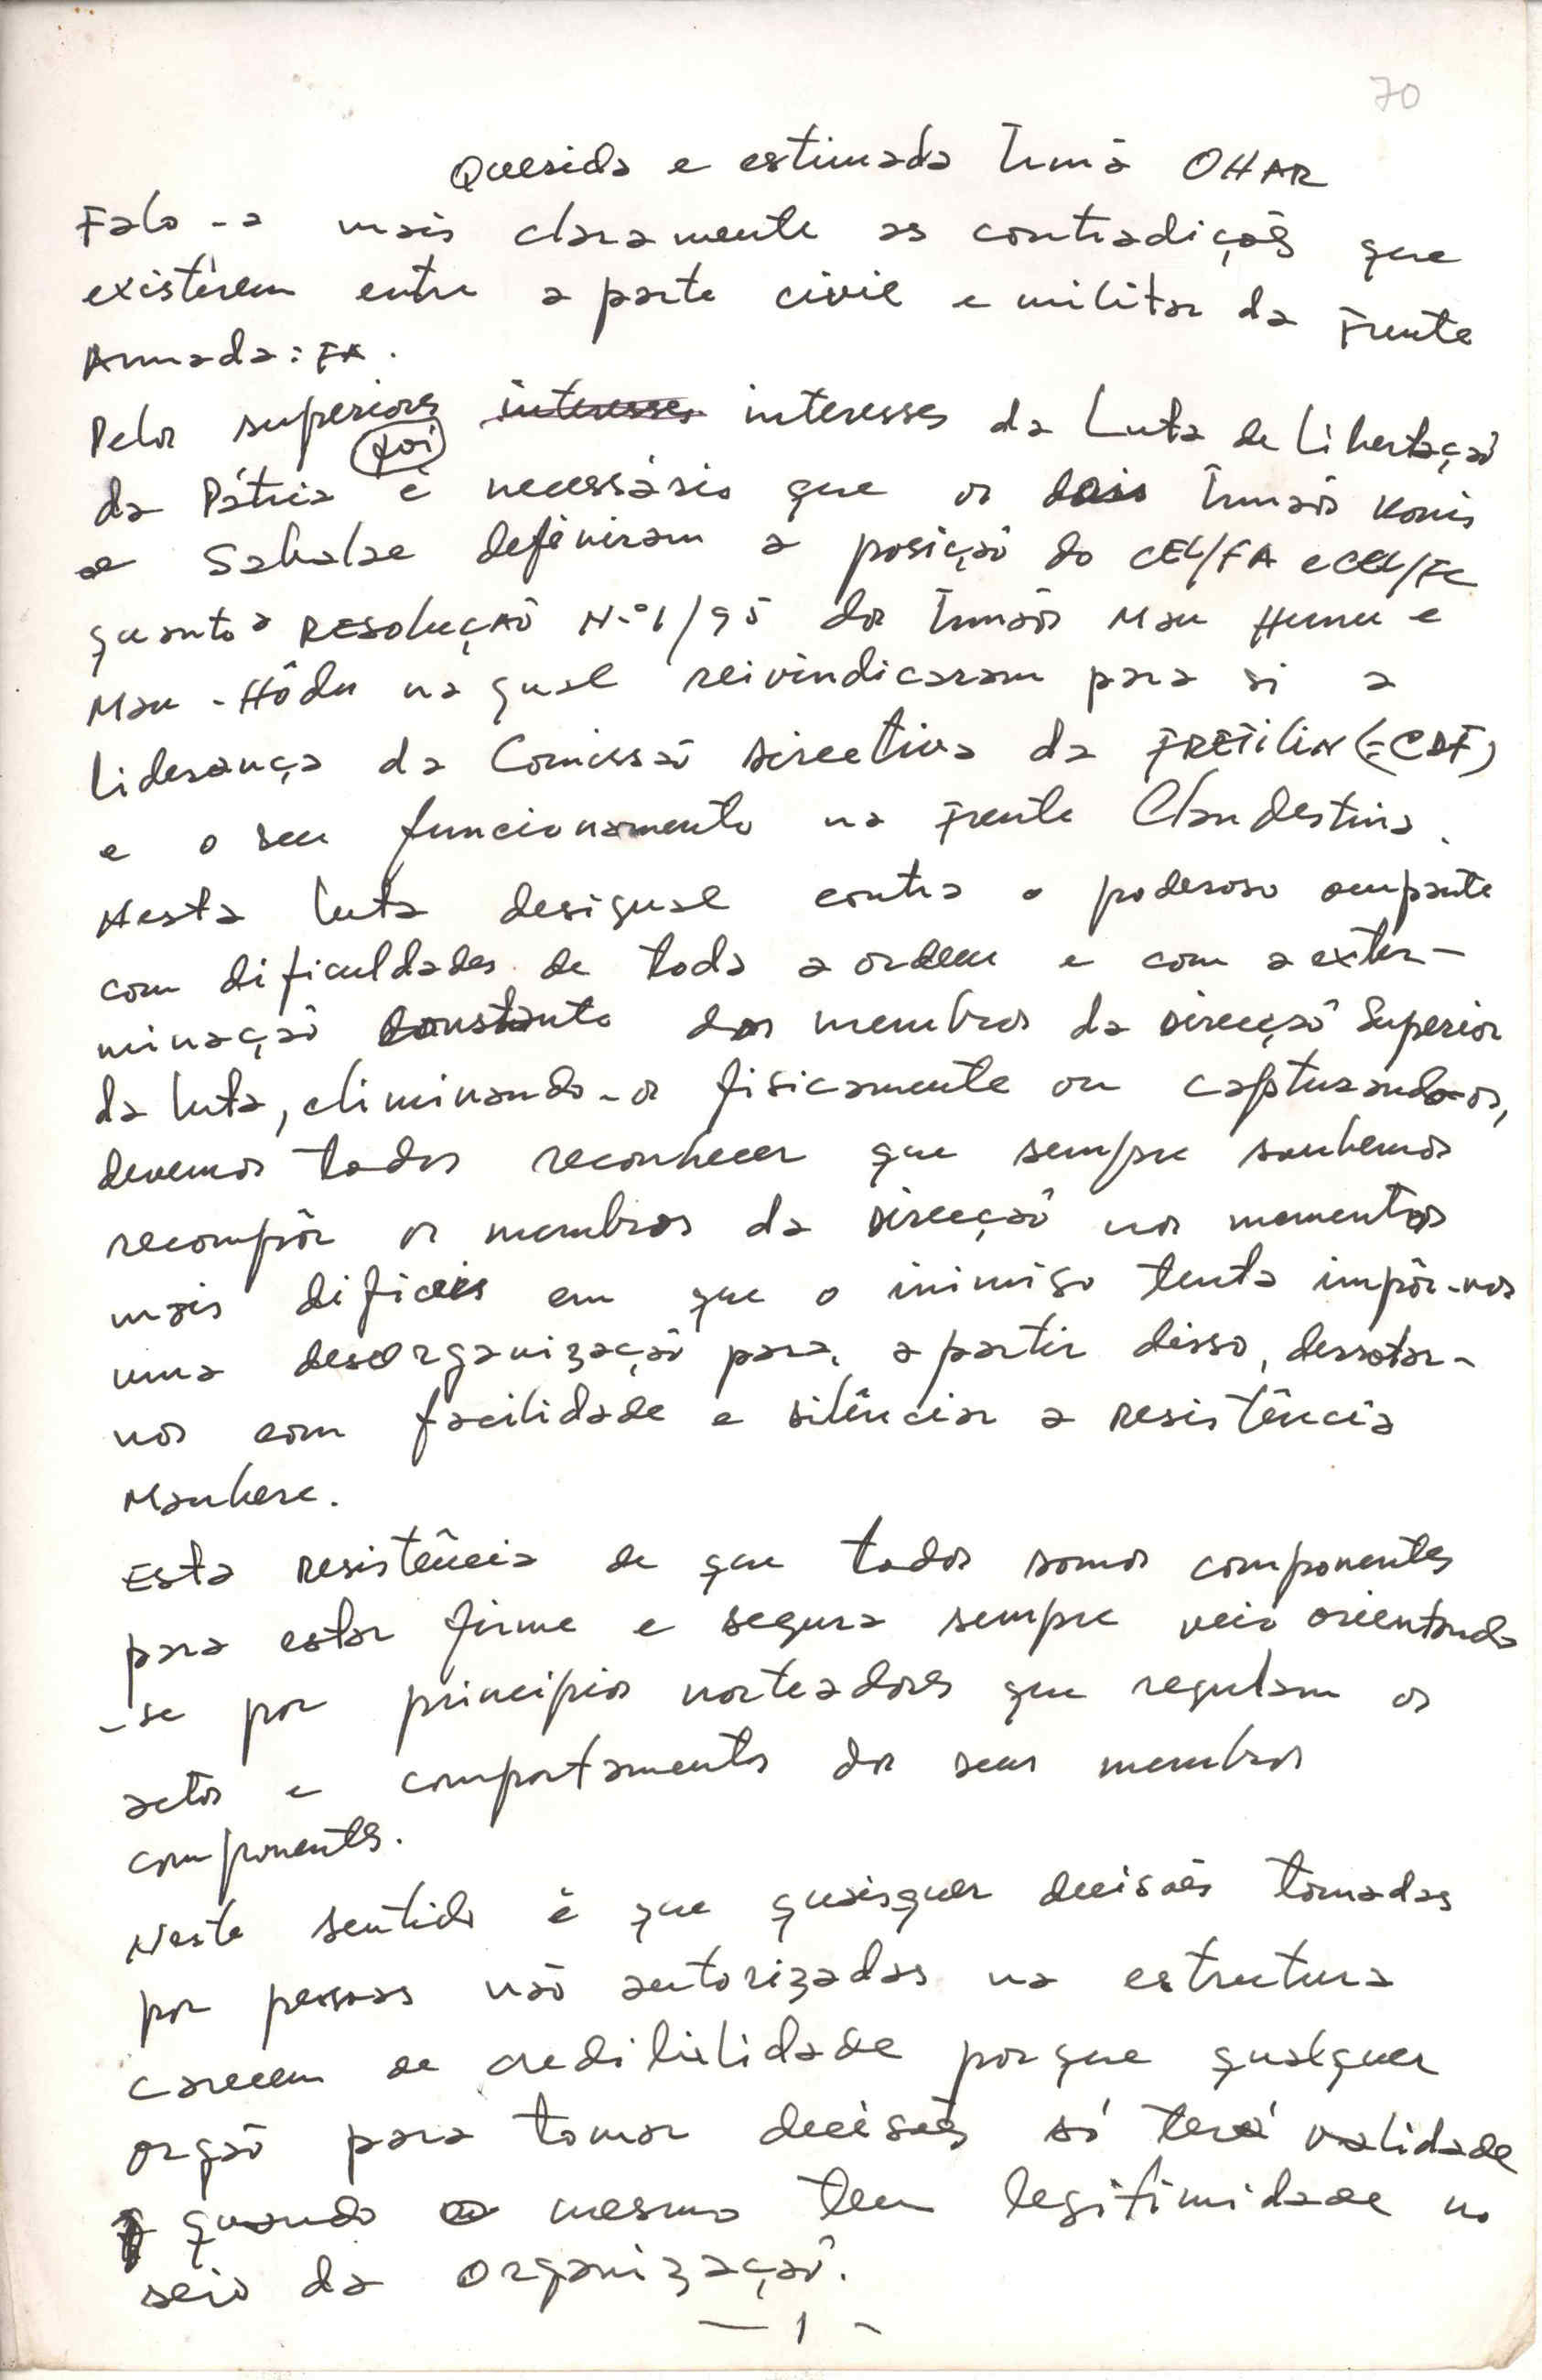 70
Querida e estimada Irmã OHAR
Falo-a mais claramente as contradições que
existirem entre a parte civil e militar da Frente
Armada: FA.
Pelos superiores interesses interesses da Luta de Libertação
da Pátria é (foi) necessário que os dois Irmãos Konis
e Sabalae definiram a posição do CEL/FA e CEL/FC
quanto a RESOLUÇÃO N.º 1/95 dos Irmãos Mau Hunu e
Mau-Hôdu na qual reivindicaram para si a
liderança da Comissão Directiva da FRETILIN (=CDF)
e o seu funcionamento na Frente Clandestina.
Nesta luta desigual contra o poderoso ocupante
com dificuldades de toda a ordem e com a exter-
minação constante dos membros da Direcção Superior
da luta, eliminando-os fisicamente ou capturando-os,
devemos todos reconhecer que sempre soubemos
recompôr os membros da Direcção nos momentos
mais dificeis em que o inimigo tenta impôr-nos
uma desorganização para, a partir disso, derrotar-
nos com facilidade e silênciar a resistência
Maubere.
Esta resistência de que todos somos componentes
para estar firme e segura sempre veio orientando
-se por principios norteadores que regulam os
actos e comportamentos dos seus membros
componentes.
Neste sentido é que quaisquer decisões tomadas
por pessoas não autorizadas na estrutura
carecem de credibilidade porque qualquer
orgão para tomar decisões só terá validade
quando o mesmo tem legitimidade no
seio da organização.
- 1 -